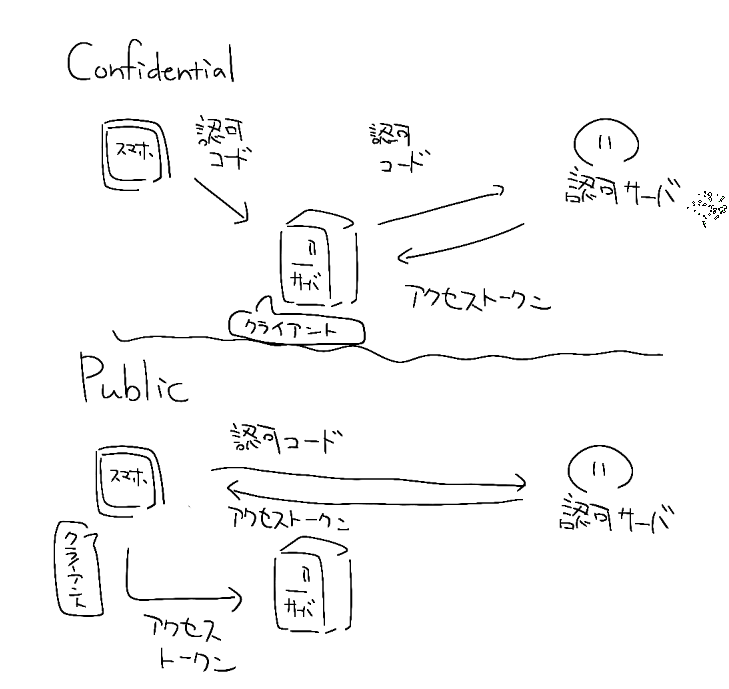 Confidential
スマホ
認可
コード
認可
コード
認可サーバ
サーバ
アクセストークン
クライアント
Public
スマホ
認可コード
アクセストークン
認可サーバ
クライアント
サーバ
アクセス
トークン